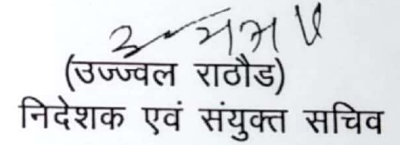 (उज्ज्वल राठौड)
निदेशक एवं संयुक्त सचिव